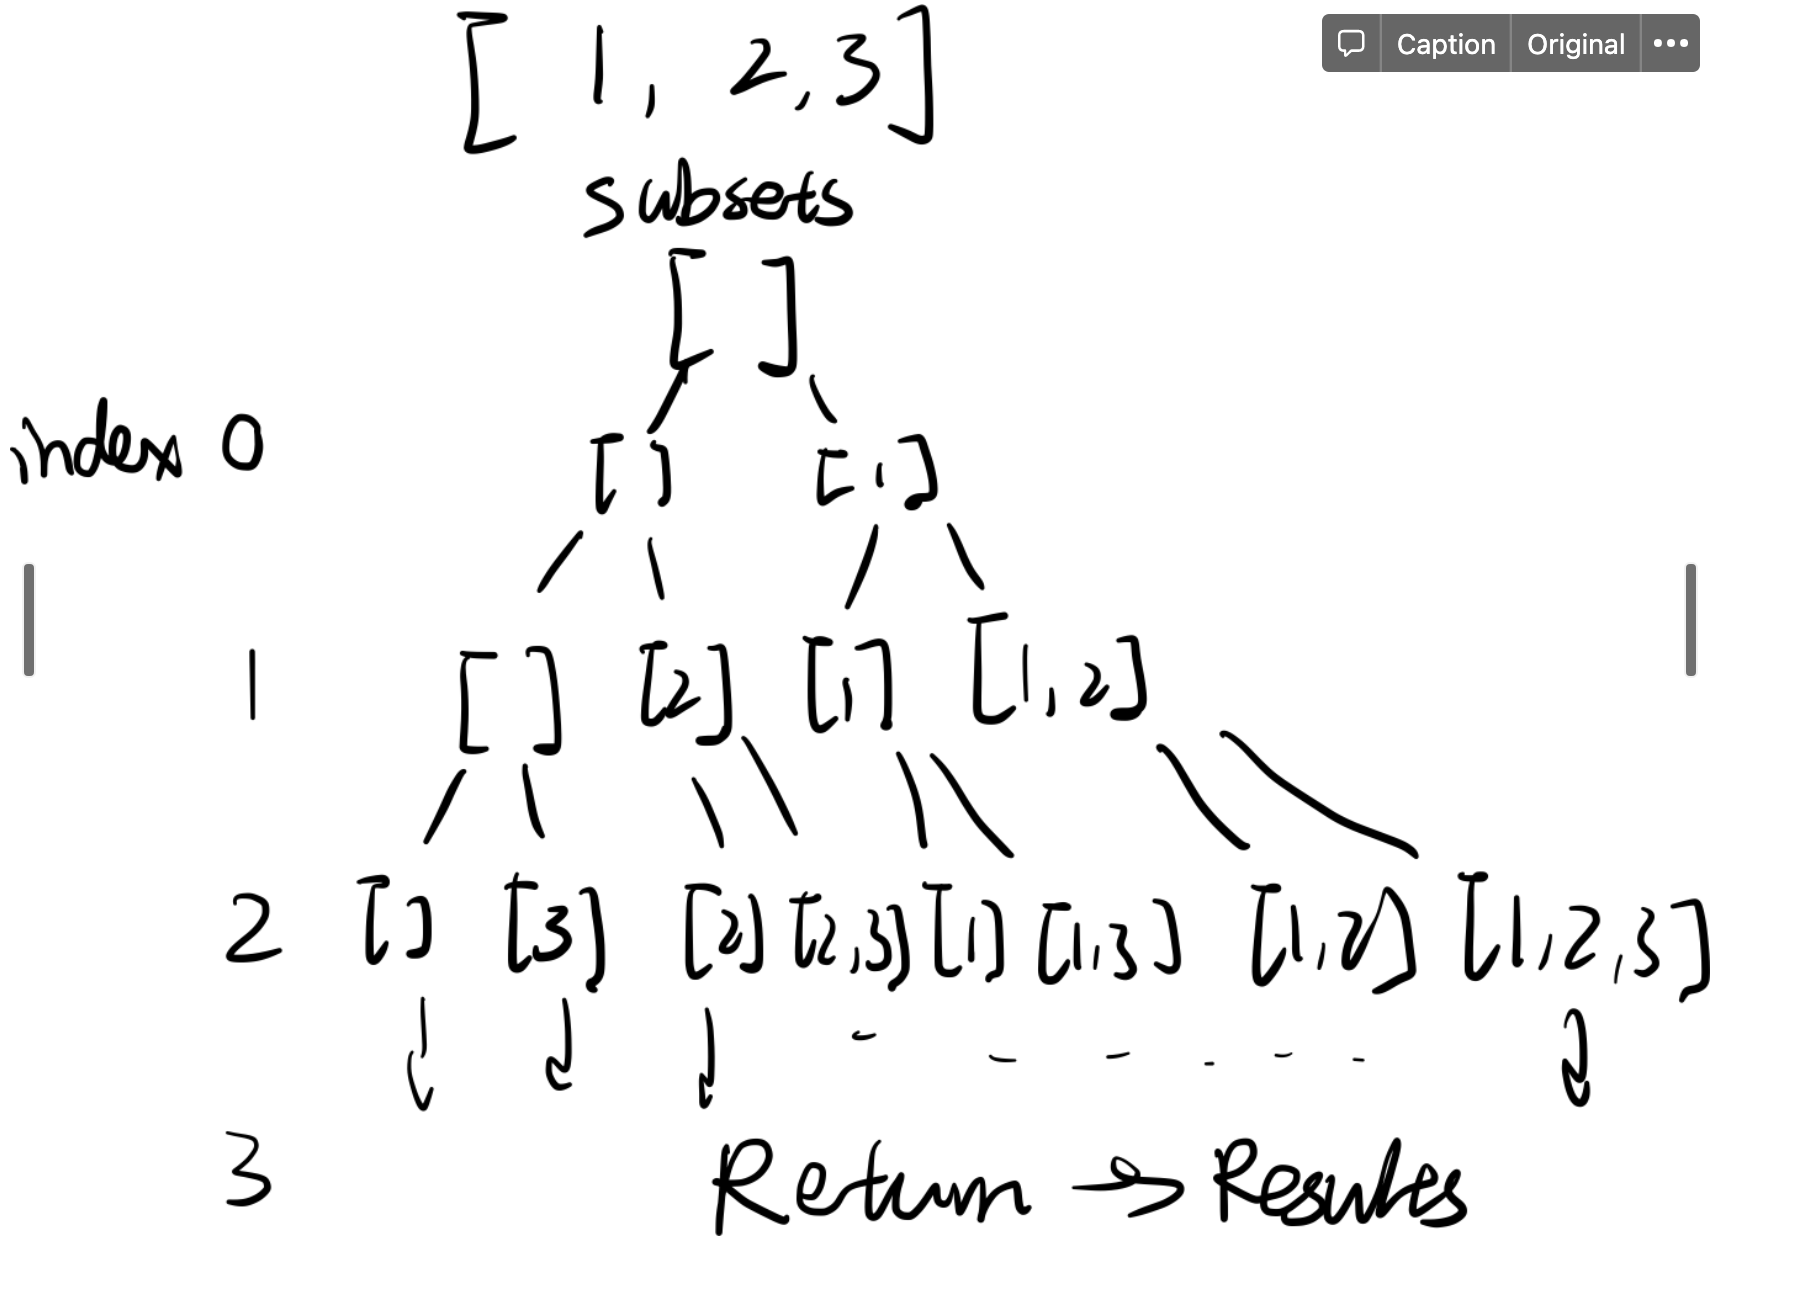 Caption Original •••
[ 1, 2,3]
subsets
[ ]
index 0 [] [1]
1 [ ] [2] [1] [1,2]
2 [] [3] [2] [2,3] [1] [1,3] [1,2] [1,2,3]
3 Return → Results